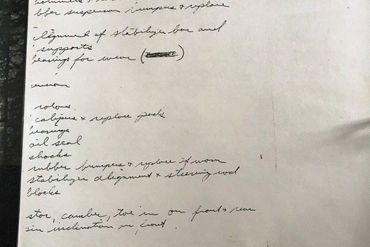 bber suspension bumpers & replace
alignment of stabilizer bar and
supports
bearings for wear (
rotors
calipers & replace pads
bearings
oil seal
shocks
rubber bumpers & replace if worn
stabilizer alignment & steering rod
blocks
stor, camber, toe in on front & rear
in inclination in front.